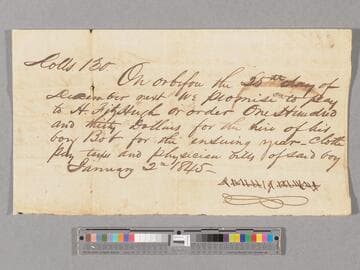 Dolls 130.
On or before the 25th day of
December next We promise to pay
to H. Fitzhugh or order One Hundred
and thirty Dollars for the hire of his
boy Bob for the ensuing year - Clothe
pay taxes and physician bills of said boy
January 2nd 1845 -